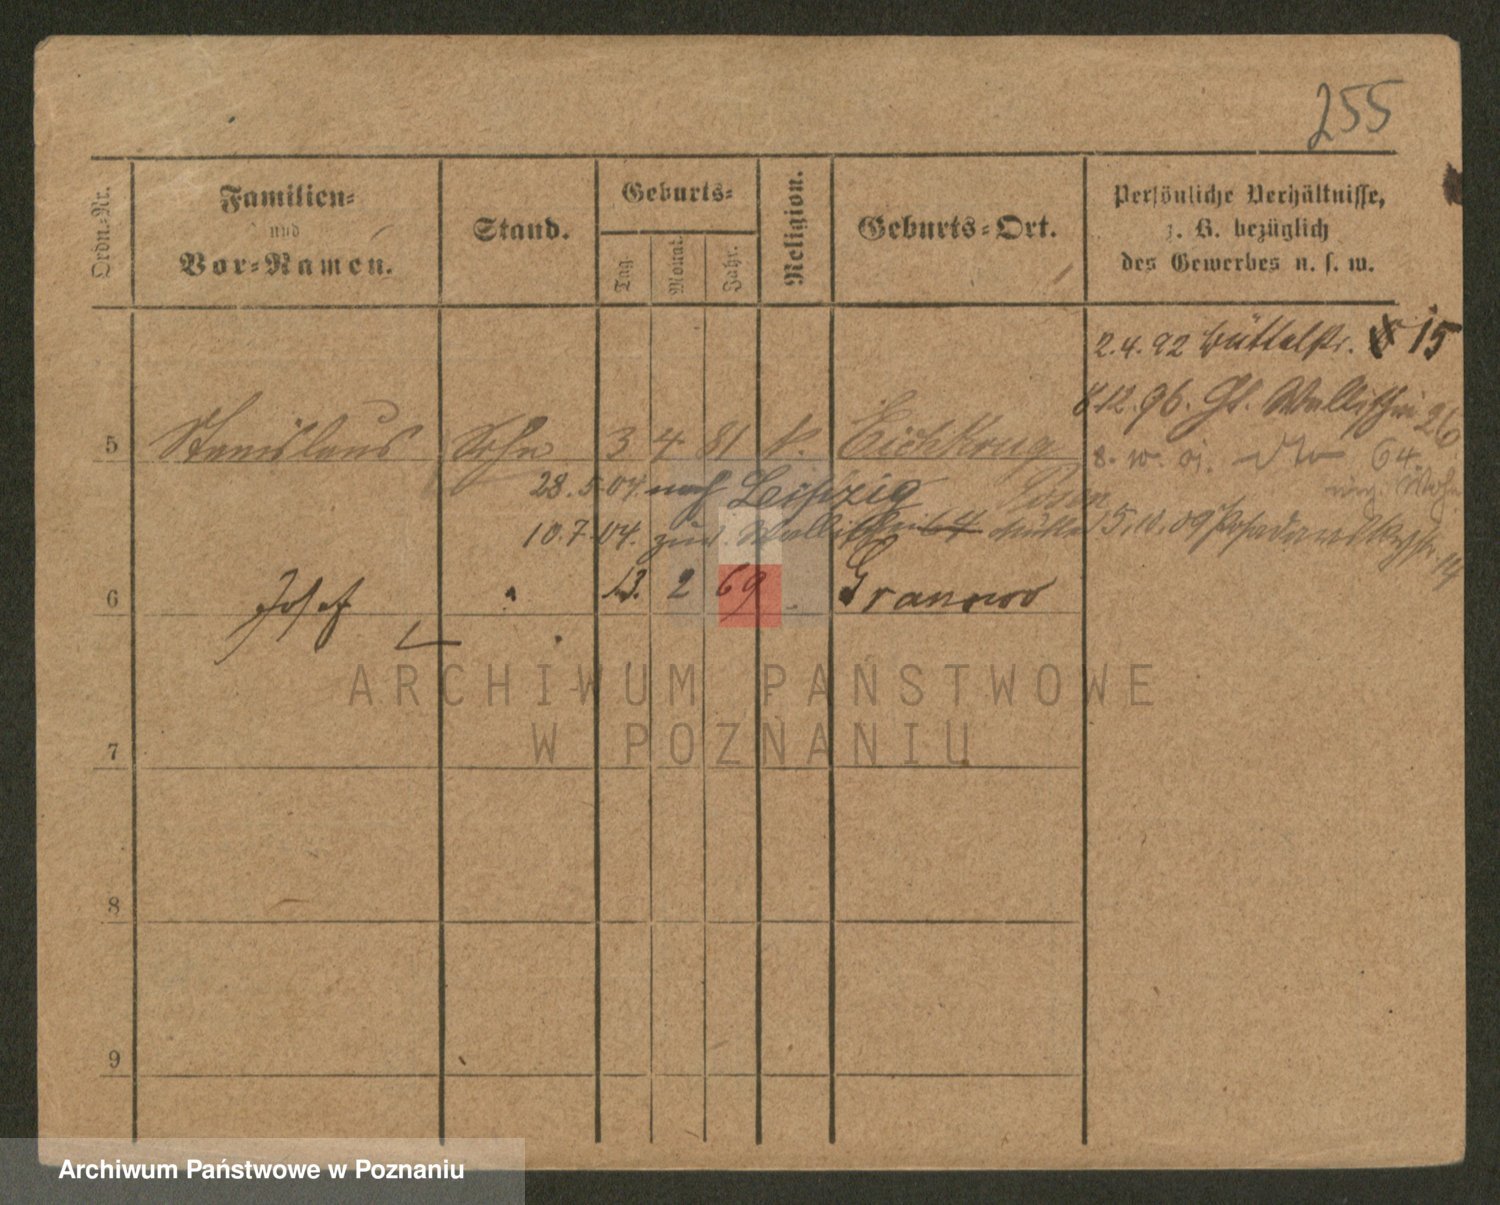 255
Ordn.-Nr.
Familien-
und
Vor-Namen.
Stand.
Geburts-
Tag
Monat.
Jahr.
Religion.
Geburts-Ort.
Persönliche Verhältnisse,
z. B. bezüglich
des Gewerbes u. s. w.
2.4.92 Büttelstr. 15
8.12.96. Wallischei 26
5 Stanislaus Sohn 3 4 81 k. Eichkrug
8. 64.
28.5.04. nach Leipzig Posen
10.7.04. zur. Wallischei 64 15.10.09
14
6 Josef 13. 2 69 Granowo
7
8
9
ARCHIWUM PAŃSTWOWE
W POZNANIU
Archiwum Państwowe w Poznaniu